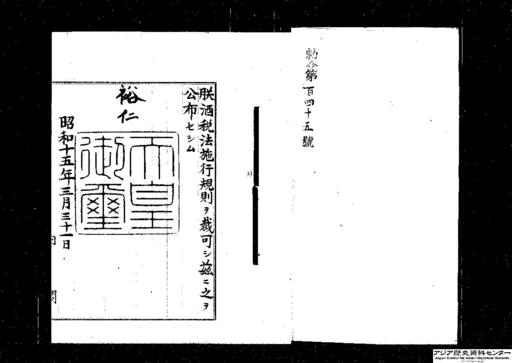 勅令第百四十五號
朕酒税法施行規則ヲ裁可シ茲ニ之ヲ
公布セシム
裕仁
天皇
御璽
昭和十五年三月三十一日
アジア歴史資料センター
Japan Center for Asian Historical Records